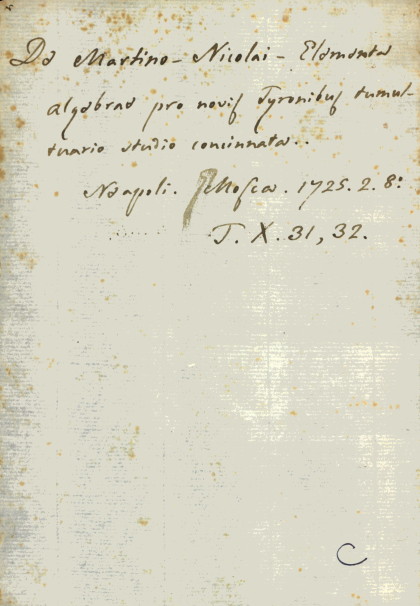 De Martino - Nicolai - Elementa
algebrae pro novis Tyronibus tumul-
tuario studio concinnata..
Neapoli. Mosca. 1725. 2. 8:
T. X. 31, 32.
C